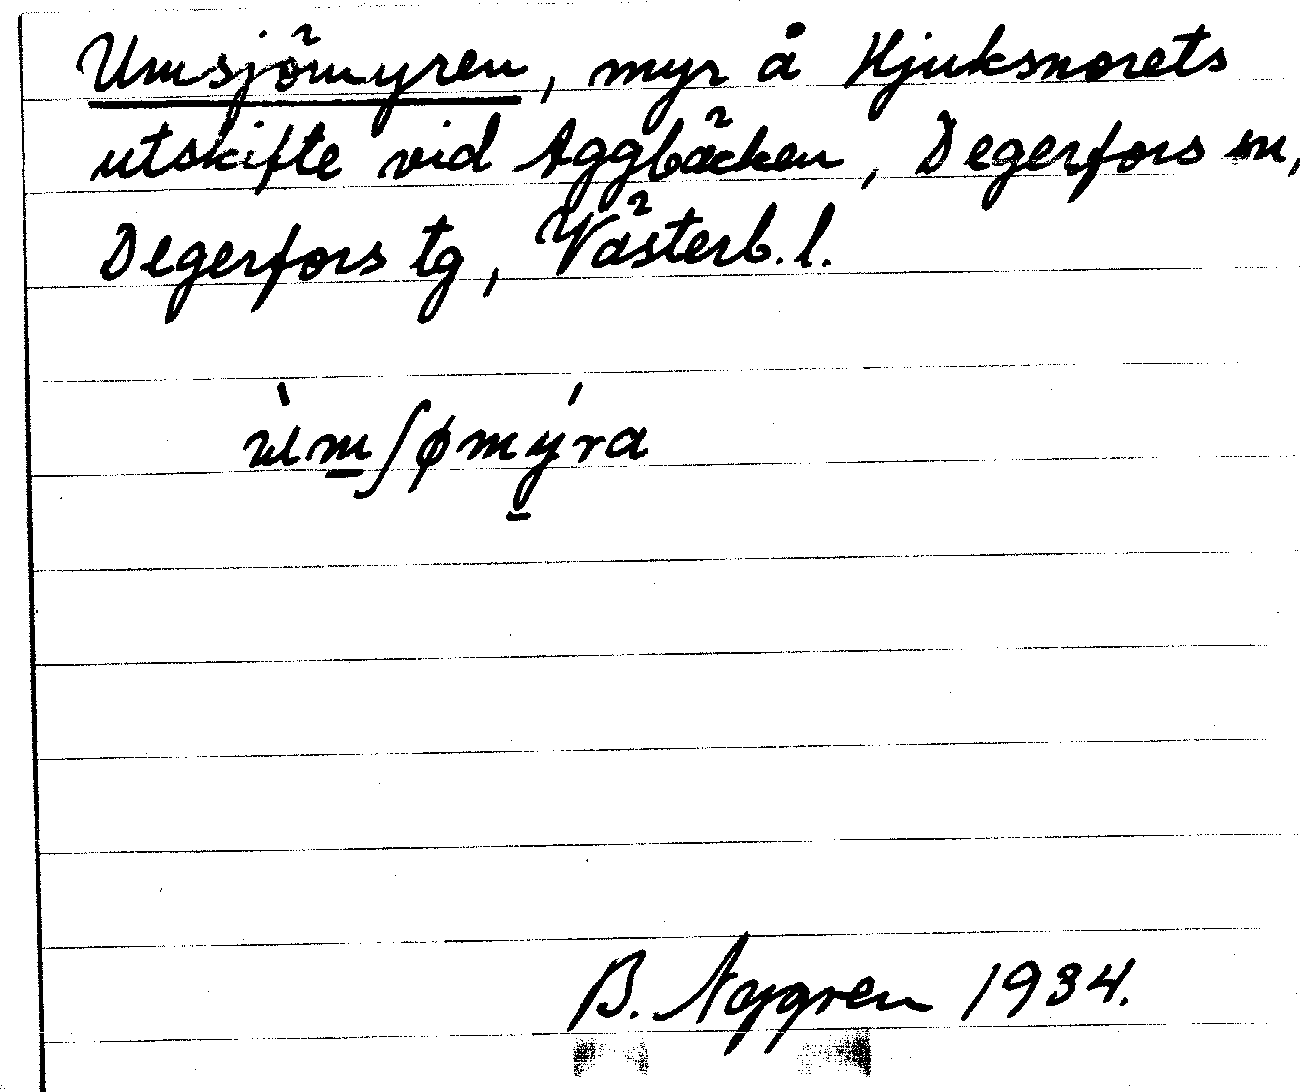 Umsjömyren, myr å Hjuksnorets
utskifte vid Aggbäcken, Degerfors sn,
Degerfors tg, Västerb. l.
ʉ̀m̲ʃømý̲ra
B. Aggren 1934.